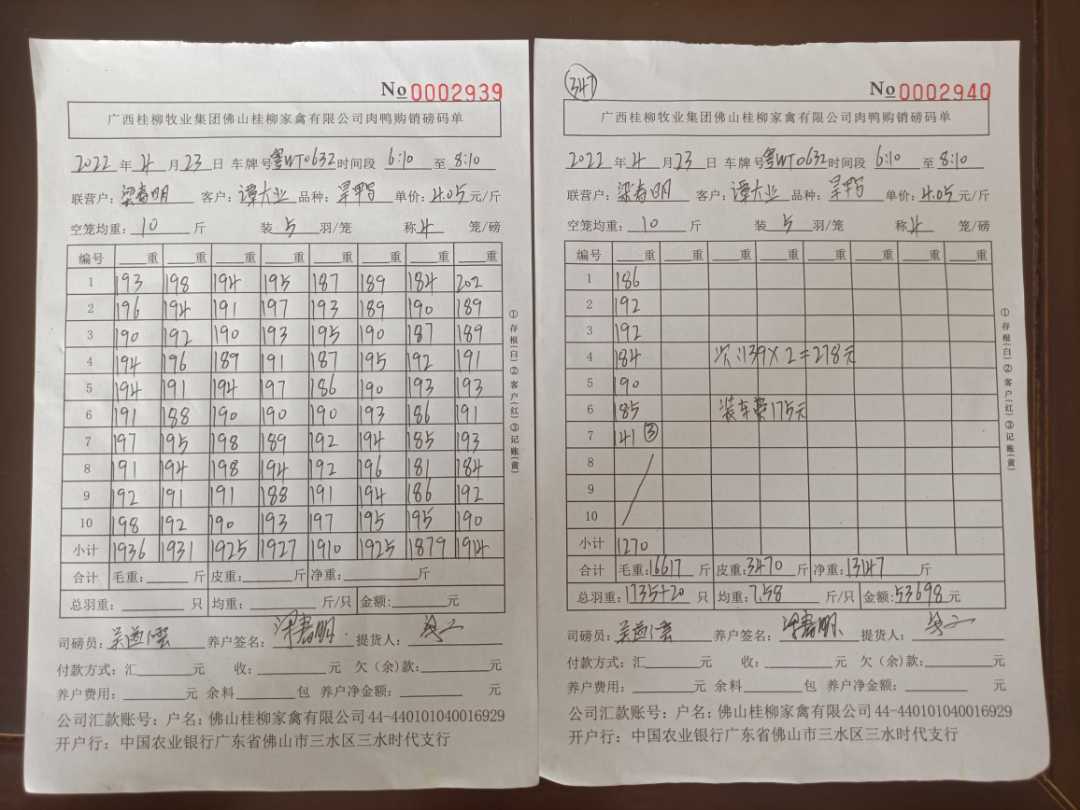 No 0002939
广西桂柳牧业集团佛山桂柳家禽有限公司肉鸭购销磅码单
2022 年 4 月 23 日 车牌号 粤WT0632 时间段 6:10 至 8:10
联营户: 梁寿明 客户: 谭大业 品种: 旱鸭 单价: 4.05 元/斤
空笼均重: 10 斤 装 5 羽/笼 称 4 笼/磅
编号 重 重 重 重 重 重 重 重
1 193 198 194 195 187 189 184 202
2 196 194 191 197 193 189 190 189
3 190 192 190 193 195 190 187 189
4 194 196 189 191 187 195 192 191
5 194 191 194 197 186 190 193 193
6 191 188 190 190 190 193 186 191
7 197 195 198 189 192 194 185 193
8 191 194 198 194 192 196 181 184
9 192 191 191 188 191 194 186 192
10 198 192 190 193 197 195 195 190
小计 1936 1931 1925 1927 1910 1925 1879 1914
合计 毛重: 斤 皮重: 斤 净重: 斤
总羽重: 只 均重: 斤/只 金额: 元
司磅员: 养户签名: 提货人:
付款方式: 汇 元 收: 元 欠（余）款: 元
养户费用: 元 余料 包 养户净金额: 元
公司汇款账号: 户名: 佛山桂柳家禽有限公司 44-440101040016929
开户行: 中国农业银行广东省佛山市三水区三水时代支行
①存根(白)②客户(红)③记账(黄)
347
No 0002940
广西桂柳牧业集团佛山桂柳家禽有限公司肉鸭购销磅码单
2022 年 4 月 23 日 车牌号 粤WT0632 时间段 6:10 至 8:10
联营户: 梁寿明 客户: 谭大业 品种: 旱鸭 单价: 4.05 元/斤
空笼均重: 10 斤 装 5 羽/笼 称 4 笼/磅
编号 重 重 重 重 重 重 重 重
1 186
2 192
3 192
4 184 次:139×2=278元
5 190
6 185 装车费175元
7 141 ③
8
9
10
小计 1270
合计 毛重: 16617 斤 皮重: 3470 斤 净重: 13147 斤
总羽重: 1735+20 只 均重: 7.58 斤/只 金额: 53698 元
司磅员: 养户签名: 提货人:
付款方式: 汇 元 收: 元 欠（余）款: 元
养户费用: 元 余料 包 养户净金额: 元
公司汇款账号: 户名: 佛山桂柳家禽有限公司 44-440101040016929
开户行: 中国农业银行广东省佛山市三水区三水时代支行
①存根(白)②客户(红)③记账(黄)